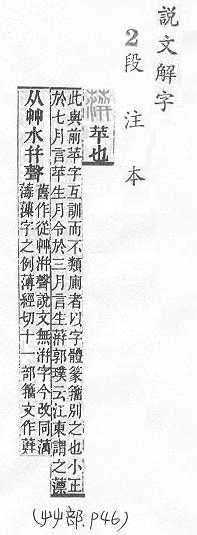 説文解字
2段注本
苹也
此與前苹字互訓而不類廁者以字體篆籀別之也小正
於七月言苹生月令於三月言生蓱郭璞云江東謂之薸
从艸水幷聲
舊作從艸洴聲說文無洴字今改同
薄藻字之例薄經切十一部籀文作蓱
(艸部.P46)